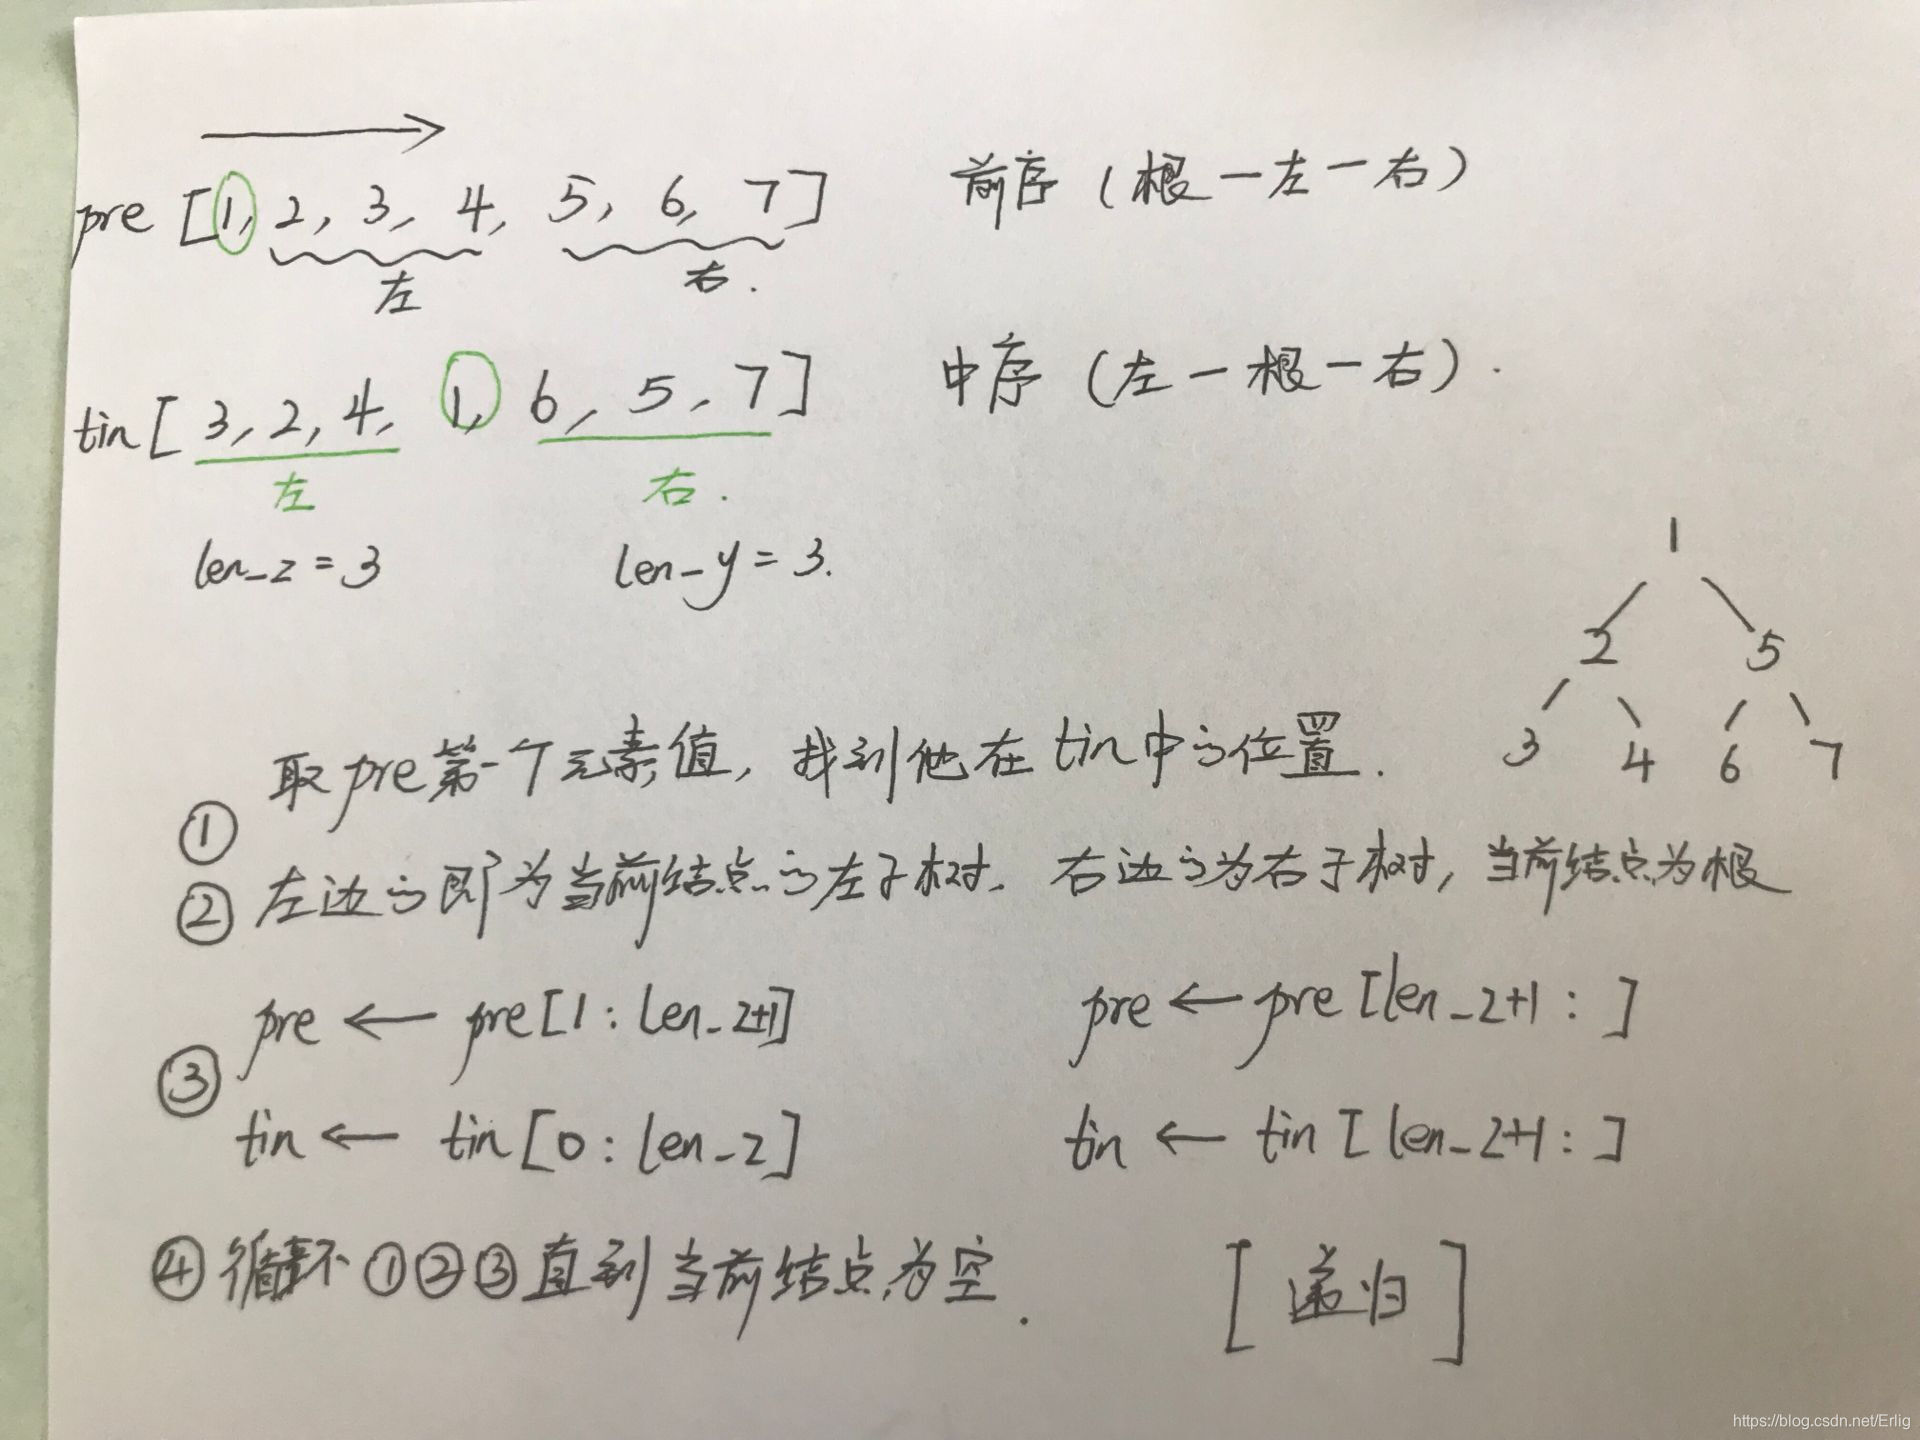 pre [1, 2, 3, 4, 5, 6, 7] 前序 (根-左-右)
左 右.
tin [3, 2, 4, 1, 6, 5, 7] 中序 (左-根-右).
左 右.
len_z = 3 len_y = 3.
1
2 5
3 4 6 7
① 取pre第一个元素值, 找到他在tin中的位置.
② 左边的即为当前结点的左子树. 右边的为右子树, 当前结点为根
③
pre ← pre[1: len_z+1] pre ← pre[len_z+1: ]
tin ← tin[0: len_z] tin ← tin[len_z+1: ]
④ 循环①②③直到当前结点为空. [递归]
https://blog.csdn.net/Erlig